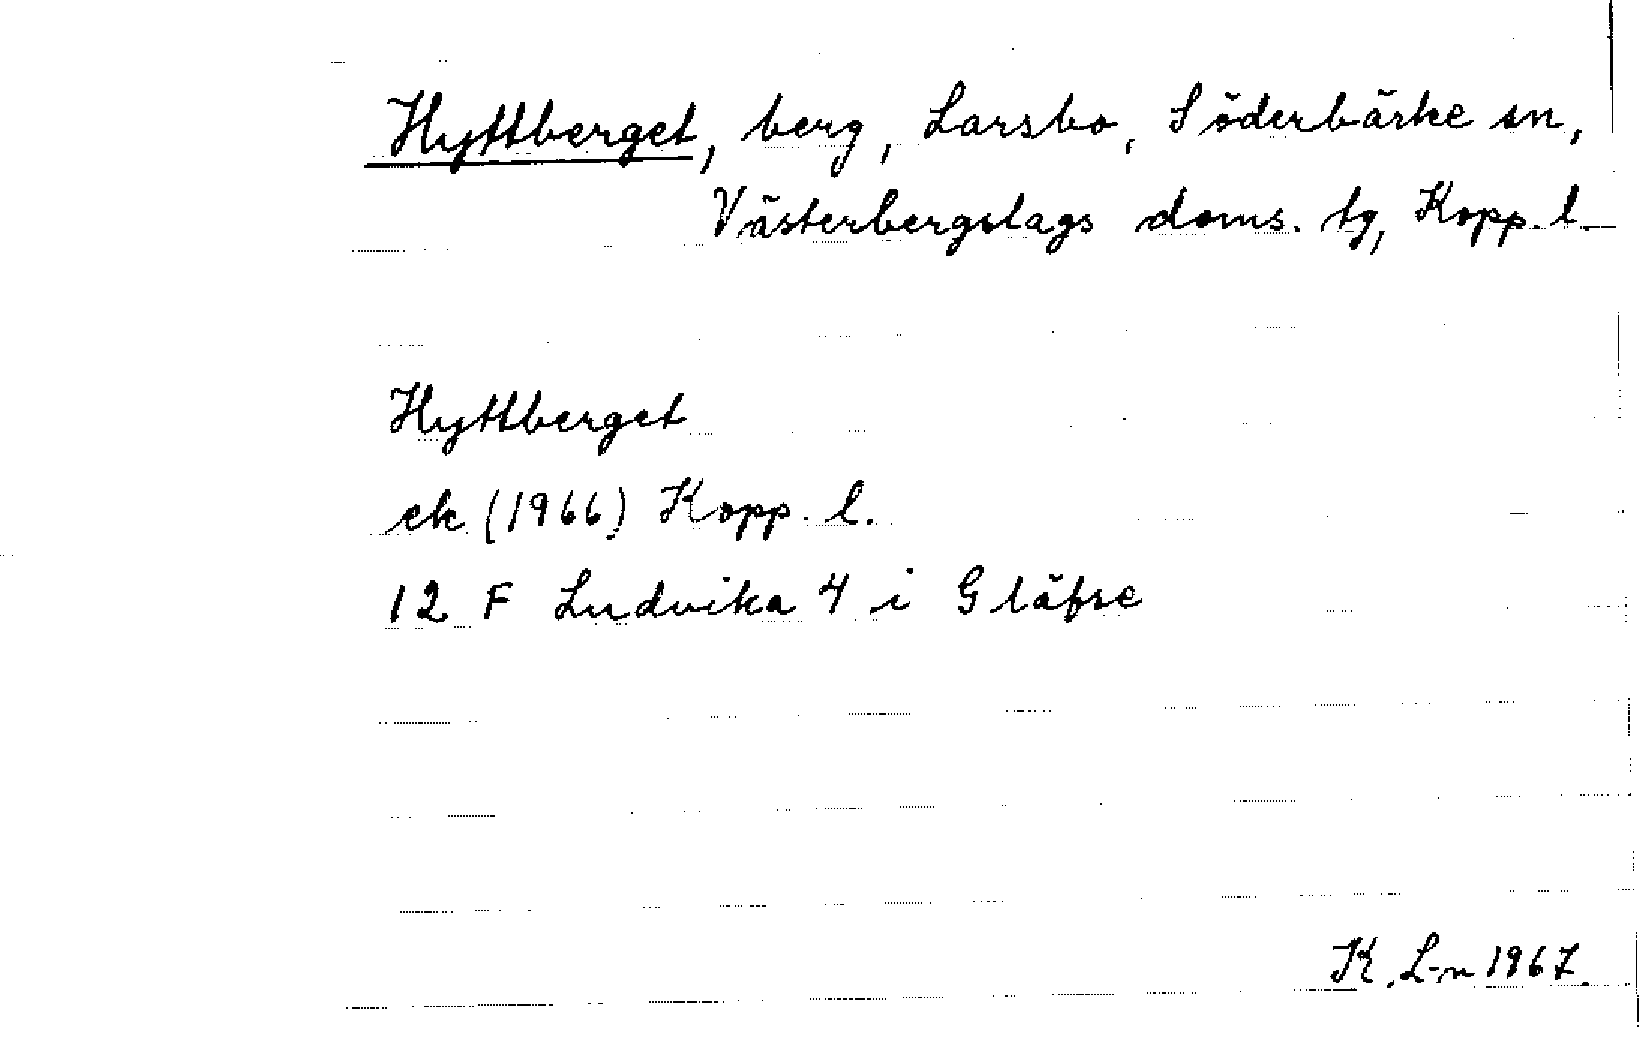 Hyttberget, berg, Larsbo, Söderbärke sn,
Västerbergslags doms. tg, Kopp. l.
Hyttberget
ek (1966) Kopp. l.
12 F Ludvika 4 i Gläfse
K. L-n 1967